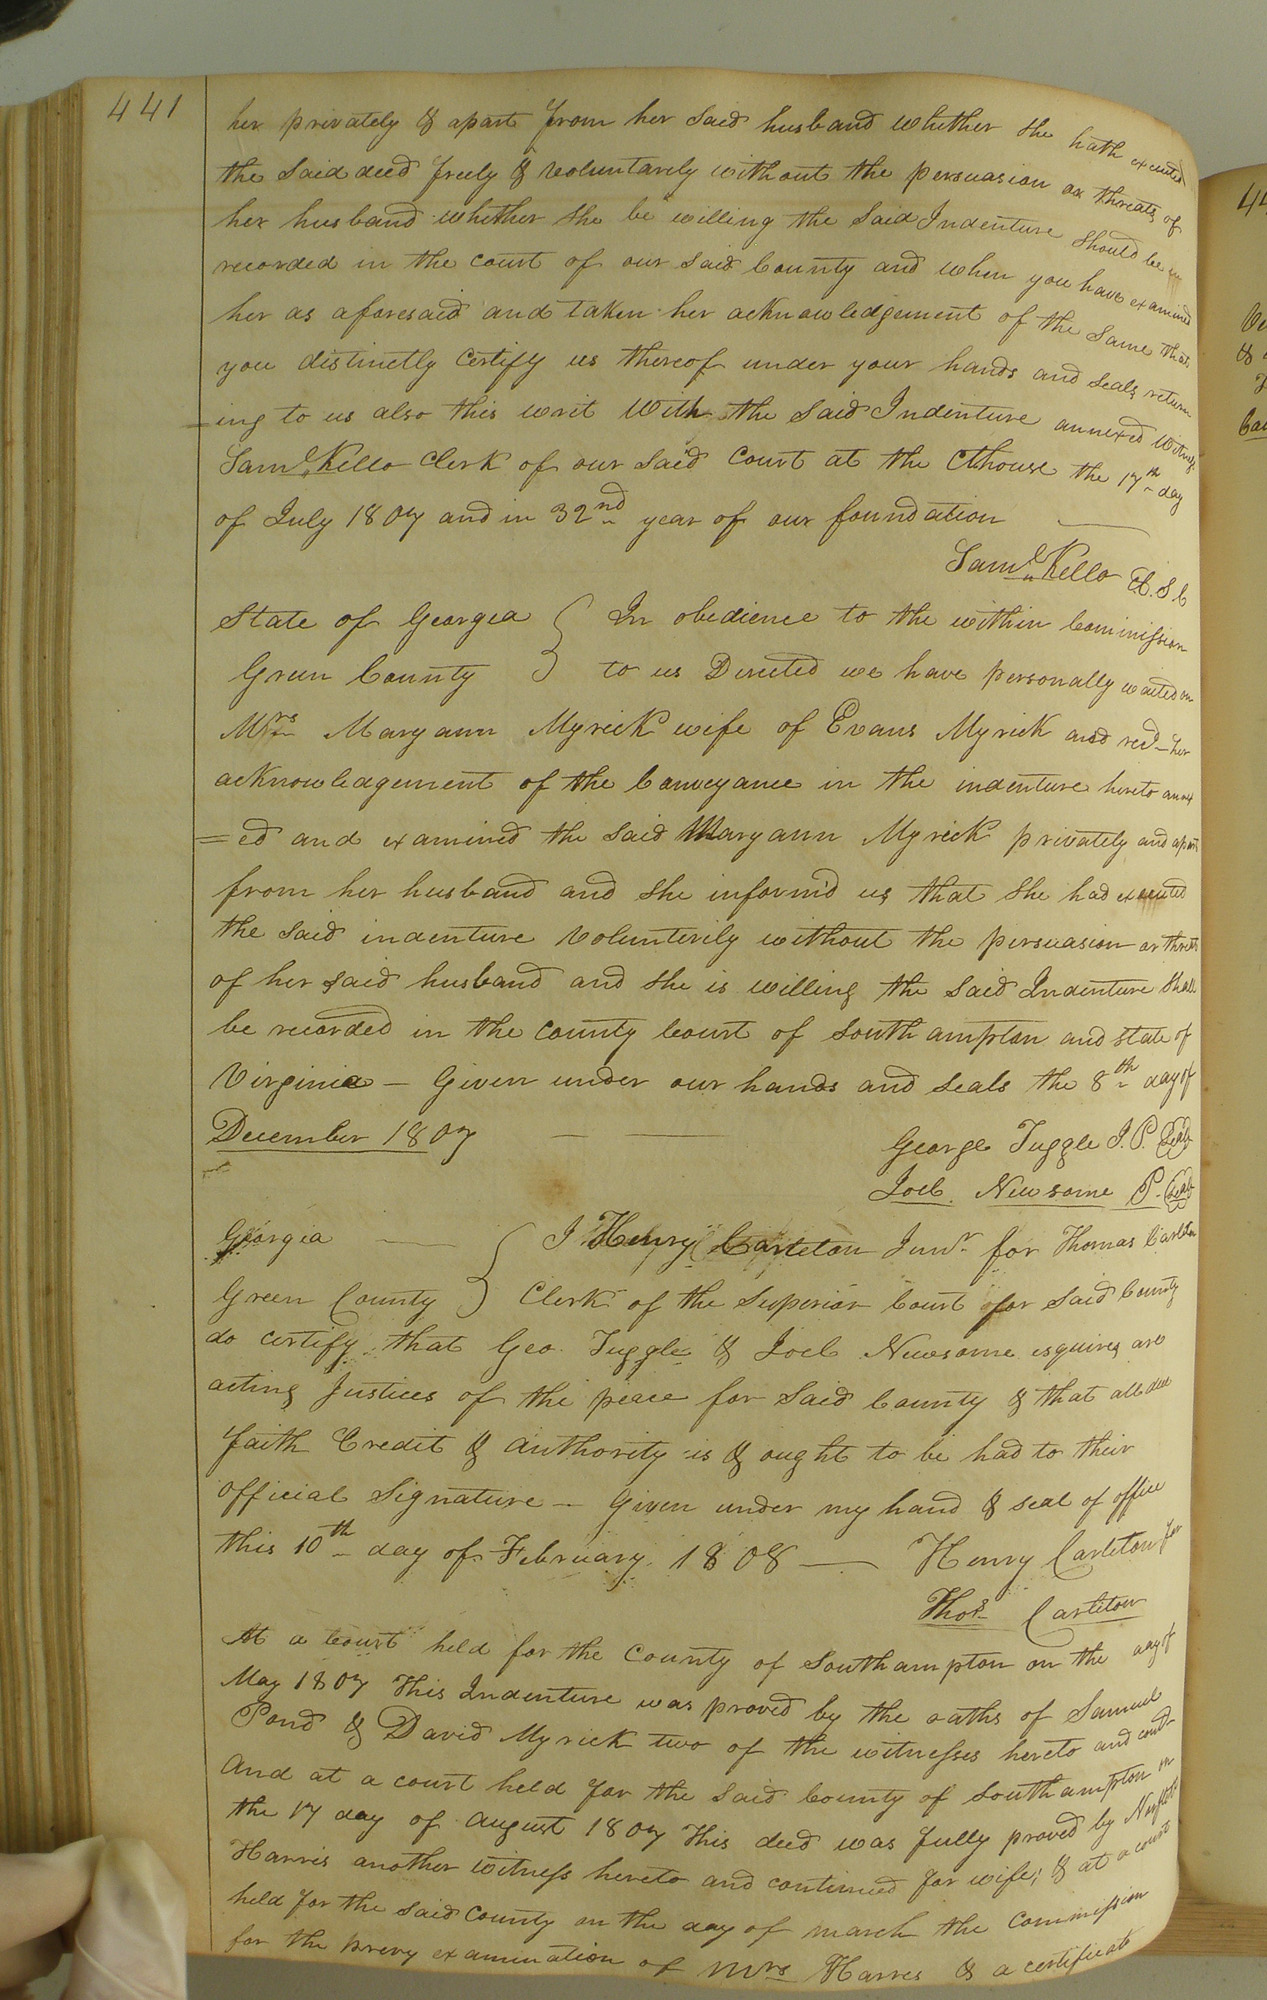 441
her privately & apart from her Said husband whether She hath executed
the Said deed freely & Voluntarely without the persuasion or threats of
her husband whether She be willing the Said Indenture Should be
recorded in the court of our Said County and when you have examined
her as aforesaid and taken her acknowledgement of the Same that
you distinctly Certify us thereof under your hands and Seals return
=ing to us also this writ With the Said Indenture annexed Witness
Saml. Kello Clerk of our Said Court at the Cthouse the 17th day
of July 1807 and in 32nd year of our foundation
Saml. Kello Cl. S C
State of Georgia } In obedience to the within Commission
Green County } to us Directed we have personally waited on
Mrs Maryann Myrick wife of Evans Myrick and recd her
acknowledgement of the Conveyance in the indenture hereto annex
=ed and examined the Said Maryann Myrick privately and apart
from her husband and She inform'd us that She had executed
the Said indenture Volunterily without the persuasion or threats
of her said husband and She is willing the Said Indenture Shall
be recorded in the County Court of Southampton and State of
Virginia — Given under our hands and Seals the 8th day of
December 1807
George Tuggle J. P. Seal
Joel Newsome P. Seal
Georgia } I Henry Carleton Junr. for Thomas Carleton
Green County } Clerk of the Superior Court for Said County
do certify that Geo Tuggle & Joel Newsome esquires are
acting Justices of the peace for Said County & that all due
faith Credit & authority is & ought to be had to their
official Signature — Given under my hand & seal of office
this 10th day of February 1808 — Henry Carleton for
Thos. Carleton
At a Court held for the County of Southampton on the day of
May 1807 This Indenture was proved by the oaths of Samuel
Pond & David Myrick two of the witnesses hereto and contd
And at a court held for the Said County of Southampton on
the 17 day of August 1807 This deed was fully proved by Norfleet
Harris another witness hereto and continued for wife; & at a court
held for the Said County on the day of march the Commission
for the privy examination of Mrs Harres & a certificate
44